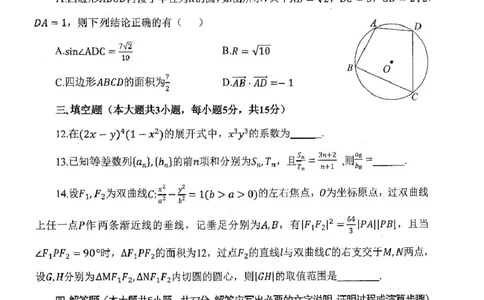 DA = 1，则下列结论正确的有（ ）
A.sin∠ADC = 7√2/10 B.R = √10
C.四边形ABCD的面积为7/2 D.AB⃗ · AD⃗ = −1
A D
B O
C
三、填空题（本大题共3小题，每小题5分，共15分）
12.在(2x − y)⁴(1 − x²)的展开式中，x³y³的系数为_____.
13.已知等差数列{aₙ}, {bₙ}的前n项和分别为Sₙ, Tₙ，且Sₙ/Tₙ = (3n+2)/(n+1) ,则a₈/b₈ =_____.
14.设F₁, F₂为双曲线C: x²/a² − y²/b² = 1(b > a > 0)的左右焦点，O为坐标原点，过双曲线
上任一点P作两条渐近线的垂线，记垂足分别为A, B，有|F₁F₂|² = 64/3|PA||PB|，且当
∠F₁PF₂ = 90°时，ΔF₁PF₂的面积为12，过点F₂的直线l与双曲线C的右支交于M, N两点，
设G, H分别为ΔMF₁F₂, ΔNF₁F₂内切圆的圆心，则|GH|的取值范围是_____.